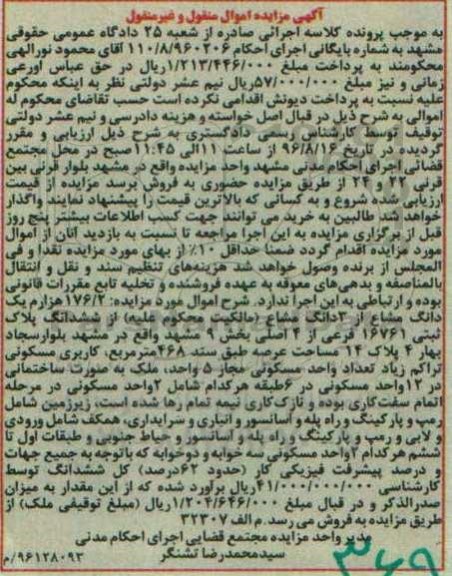 آگهی مزایده اموال منقول و غیرمنقول
به موجب پرونده کلاسه اجرائی صادره از شعبه ۲۵ دادگاه عمومی حقوقی
مشهد به شماره بایگانی اجرای احکام ۱۱۰/۸/۹۶۰۲۰۶ آقای محمود نورالهی
محکومند به پرداخت مبلغ ۱/۲۱۳/۴۴۶/۰۰۰ریال در حق عباس اورعی
زمانی و نیز مبلغ ۵۷/۰۰۰/۰۰۰ریال نیم عشر دولتی نظر به اینکه محکوم
علیه نسبت به پرداخت دیونش اقدامی نکرده است حسب تقاضای محکوم له
اموالی به شرح ذیل در قبال اصل خواسته و هزینه دادرسی و نیم عشر دولتی
توقیف توسط کارشناس رسمی دادگستری به شرح ذیل ارزیابی و مقرر
گردیده در تاریخ ۹۶/۸/۱۶ از ساعت ۱۱الی ۱۱:۴۵صبح در محل مجتمع
قضائی اجرای احکام مدنی مشهد واحد مزایده واقع در مشهد بلوار قرنی بین
قرنی ۲۲ و ۲۴ از طریق مزایده حضوری به فروش برسد مزایده از قیمت
ارزیابی شده شروع و به کسانی که بالاترین قیمت را پیشنهاد نمایند واگذار
خواهد شد طالبین به خرید می توانند جهت کسب اطلاعات بیشتر پنج روز
قبل از برگزاری مزایده به این اجرا مراجعه تا نسبت به بازدید آنان از اموال
مورد مزایده اقدام گردد ضمنا حداقل ۱۰٪ از بهای مورد مزایده نقدا و فی
المجلس از برنده وصول خواهد شد هزینه‌های تنظیم سند و نقل و انتقال
بالمناصفه و بدهی‌های معوقه به عهده فروشنده و تخلیه تابع مقررات قانونی
بوده و ارتباطی به این اجرا ندارد. شرح اموال مورد مزایده: ۱۷۶/۲هزارم یک
دانگ مشاع از ۳دانگ مشاع (مالکیت محکوم علیه) از ششدانگ پلاک
ثبتی ۱۶۷۶۱ فرعی از ۴ اصلی بخش ۹ مشهد واقع در مشهد بلوارسجاد
بهار ۴ پلاک ۱۴ مساحت عرصه طبق سند ۴۶۸مترمربع، کاربری مسکونی
تراکم زیاد تعداد واحد مسکونی مجاز ۵ واحد، ملک به صورت ساختمانی
در ۱۲واحد مسکونی در ۶طبقه هرکدام شامل ۲واحد مسکونی در مرحله
اتمام سفت‌کاری بوده و نازک‌کاری نیمه تمام رها شده است، زیرزمین شامل
رمپ و پارکینگ و راه پله و آسانسور و انباری و سرایداری، همکف شامل ورودی
و لابی و رمپ و پارکینگ و راه پله و آسانسور و حیاط جنوبی و طبقات اول تا
ششم هرکدام ۲واحد مسکونی سه خوابه و دوخوابه که باتوجه به جمیع جهات
و درصد پیشرفت فیزیکی کار (حدود ۶۲درصد) کل ششدانگ توسط
کارشناسی ۴۱/۰۰۰/۰۰۰/۰۰۰ریال برآورد شده که از این مقدار به میزان
صدرالذکر و در قبال مبلغ ۱/۲۰۴/۶۴۶/۰۰۰ریال (مبلغ توقیفی ملک) از
طریق مزایده به فروش می رسد.م الف ۳۲۳۰۷
مدیر واحد مزایده مجتمع قضایی اجرای احکام مدنی
سیدمحمدرضا تشنگر
۹۶۱۲۸۰۹۳/م
۳۶۹